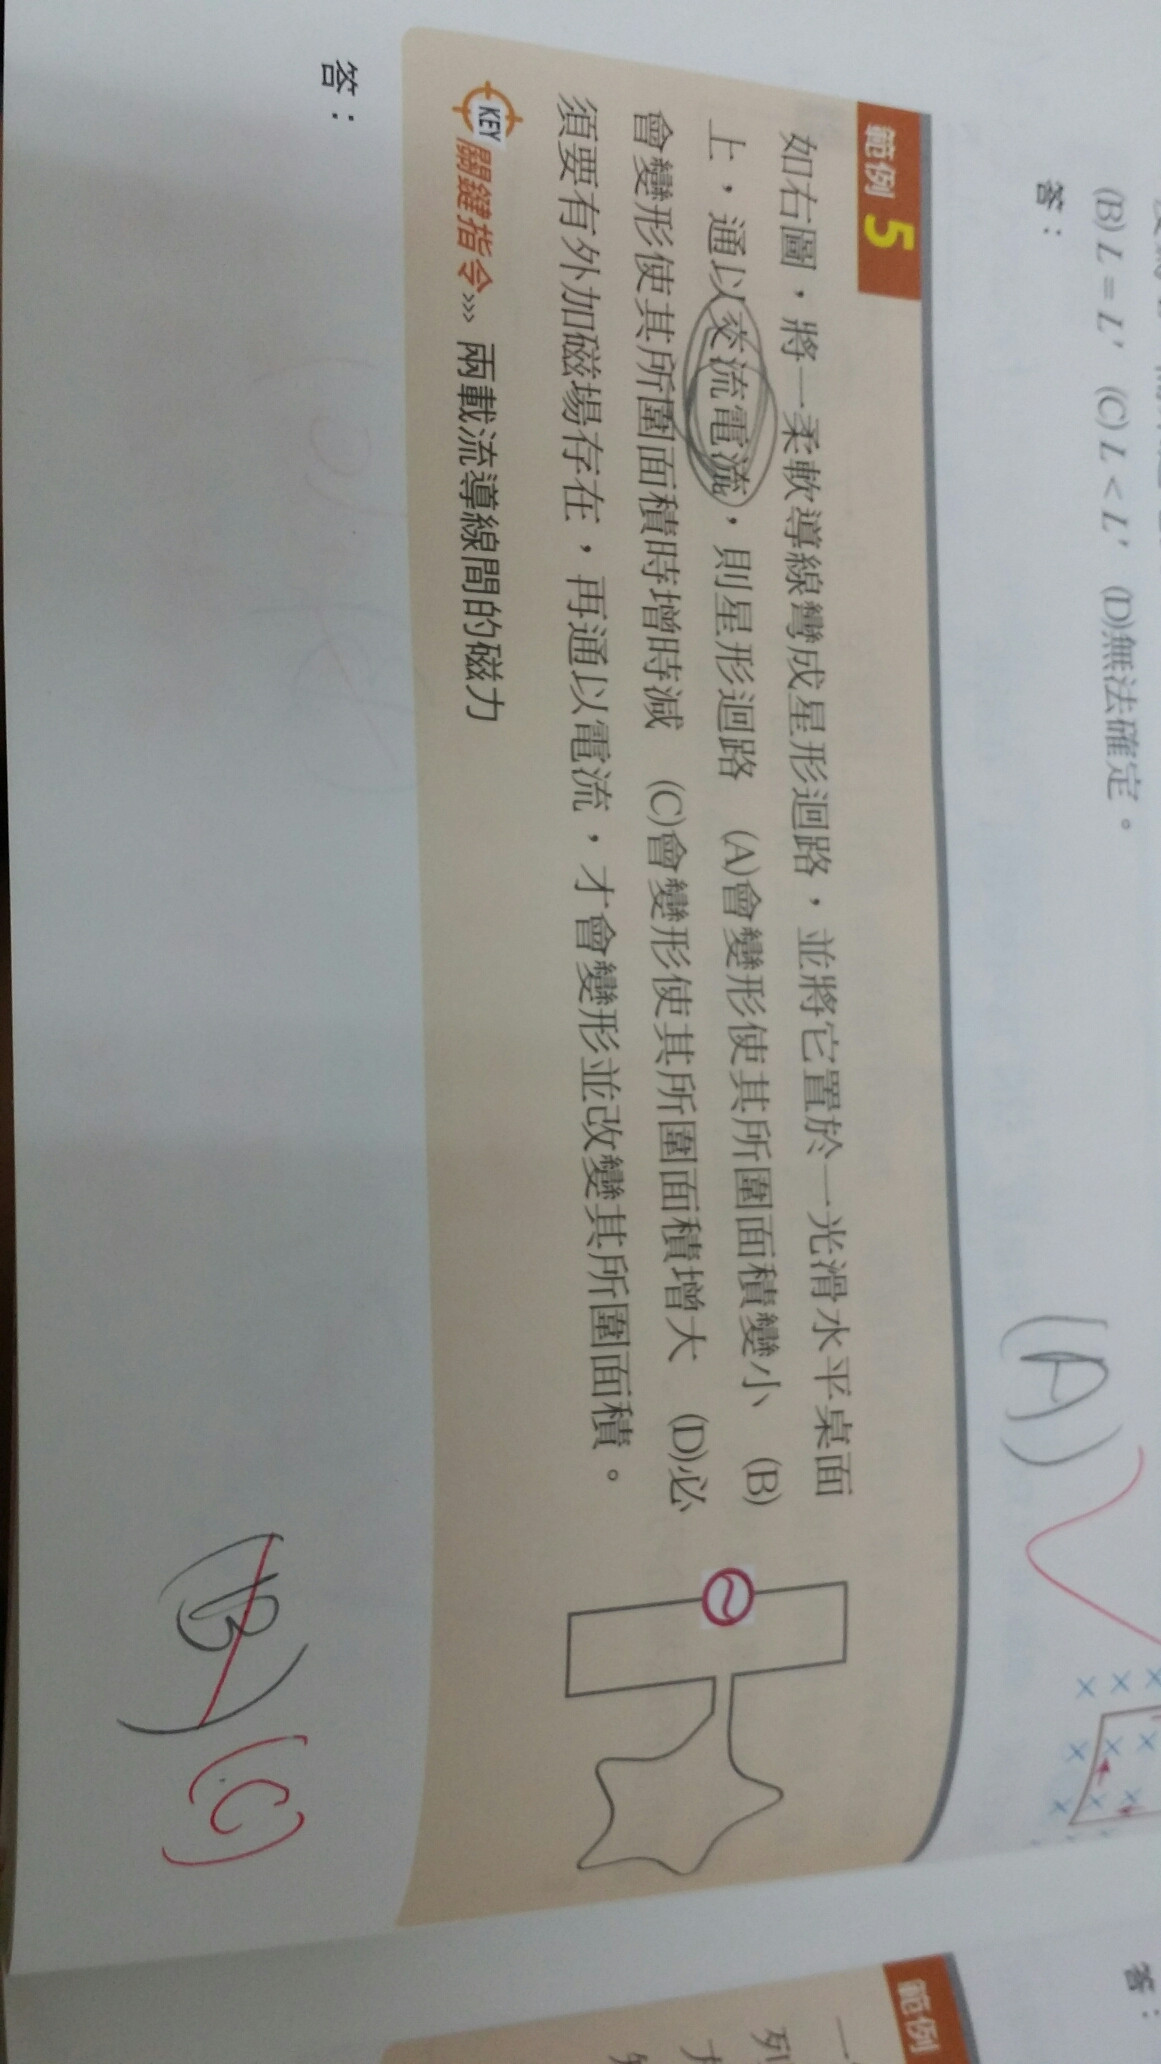 (B) L = L′ (C) L < L′ (D)無法確定。
答：
(A)
範例 5
如右圖，將一柔軟導線彎成星形迴路，並將它置於一光滑水平桌面
上，通以交流電流，則星形迴路 (A)會變形使其所圍面積變小 (B)
會變形使其所圍面積時增時減 (C)會變形使其所圍面積增大 (D)必
須要有外加磁場存在，再通以電流，才會變形並改變其所圍面積。
KEY 關鍵指令 »»» 兩載流導線間的磁力
答：
(B) (C)
答：
範例
一
列